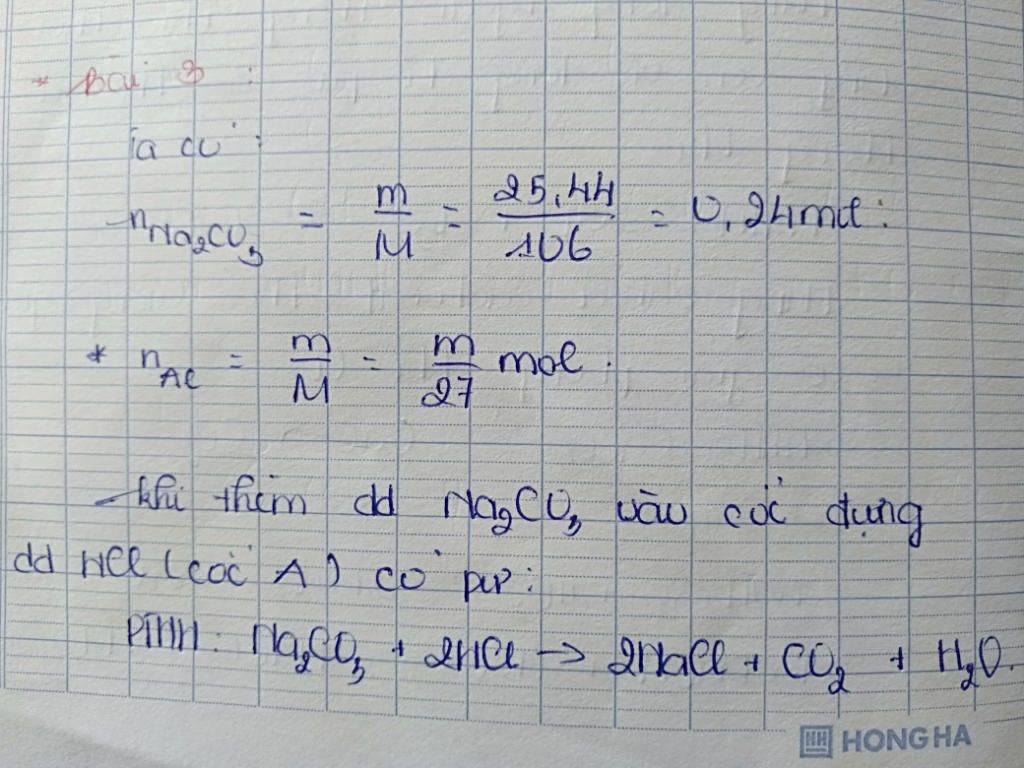 * Bài 3 :
Ta có :
- nNa₂CO₃ = m/M = 25,44/106 = 0,24 mol.
* nAl = m/M = m/27 mol.
- khi thêm dd Na₂CO₃ vào cốc đựng
dd HCl (cốc A) có pư :
PTHH: Na₂CO₃ + 2HCl → 2NaCl + CO₂ + H₂O.
HONG HA